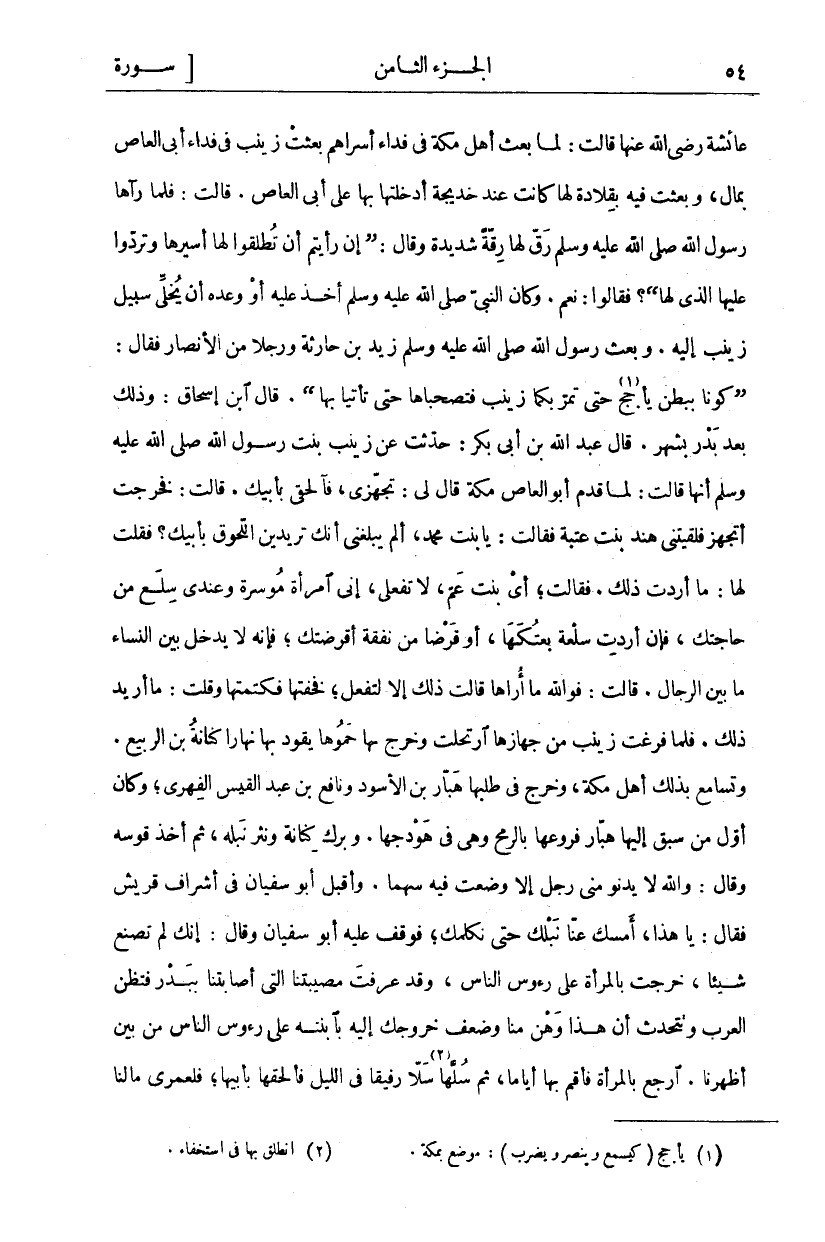 ٥٤ الجـــزء الثـامن [ ســـورة
عائشة رضى الله عنها قالت : لمـا بعث أهل مكة فى فداء أسراهم بعثتْ زينب فى فداء أبى العاص
بمال، و بعثت فيه بقلادة لها كانت عند خديجة أدخلتها بها على أبى العاص . قالت : فلما رآها
رسول الله صلى الله عليه وسلم رَقّ لها رِقّةً شديدة وقال : ”إن رأيتم أن تُطلقوا لها أسيرها وتردّوا
عليها الذى لها“؟ فقالوا : نعم . وكان النبىّ صلى الله عليه وسلم أخـذ عليه أوْ وعده أن يُخلِّى سبيل
زينب إليه . و بعث رسول الله صلى الله عليه وسلم زيد بن حارثة ورجلا من الأنصار فقال :
”كونا ببطن يأجج(١) حتى تمرّ بكما زينب فتصحباها حتى تأتيا بها“ . قال ٱبن إسحاق : وذلك
بعد بَدْر بشهر . قال عبد الله بن أبى بكر : حدّثت عن زينب بنت رسـول الله صلى الله عليه
وسلم أنها قالت : لمـا قدم أبو العاص مكة قال لى : تجهّزى، فٱلحقى بأبيك . قالت : فخرجت
أتجهز فلقيتنى هند بنت عتبة فقالت : يا بنت محمد، ألم يبلغنى أنك تريدين اللّحوق بأبيك؟ فقلت
لها : ما أردت ذلك . فقالت؛ أىْ بنت عَمّ، لا تفعلى، إنى ٱمرأة مُوسرة وعندى سِلَـع من
حاجتك ، فإن أردتِ سلْعة بعتُكَهَا ، أو قَرْضا من نفقة أقرضتك ؛ فإنه لا يدخل بين النساء
ما بين الرجال . قالت : فوالله ما أُراها قالت ذلك إلا لتفعل؛ فخفتها فـكتمتها وقلت : ما أريد
ذلك . فلما فرغت زينب من جهازها ٱرتحلت وخرج بها حَمُوها يقود بها نهارا كنانةُ بن الربيع .
وتسامع بذلك أهل مكة، وخرج فى طلبها هَبّار بن الأسود ونافع بن عبد القيس الفِهرى؛ وكان
أوّل من سبق إليها هبّار فروعها بالرمح وهى فى هَوْدجها . و برك كنانة ونثر نَبله ، ثم أخذ قوسه
وقال : والله لا يدنو منى رجل إلا وضعت فيه سهما . وأقبل أبو سفيان فى أشراف قريش
فقال : يا هذا، أمسك عنّا نَبْلك حتى نكلمك؛ فوقف عليه أبو سفيان وقال : إنك لم تصنع
شـيئا ، خرجت بالمرأة على رءوس الناس ، وقد عرفتَ مصيبتنا التى أصابتنا ببَـدْر فتظن
العرب ونتحدث أن هـذا وَهْن منا وضعف خروجك إليه بٱبنتـه على رءوس الناس من بين
أظهرنا . ٱرجع بالمرأة فأقم بها أياما، ثم سُلَّها(٢) سَلّا رفيقا فى الليل فألحقها بأبيها؛ فلعمرى مالنا
(١) يأجج ( كيسمع وينصر ويضرب ) : موضع بمكة . (٢) انطلق بها فى استخفاء .